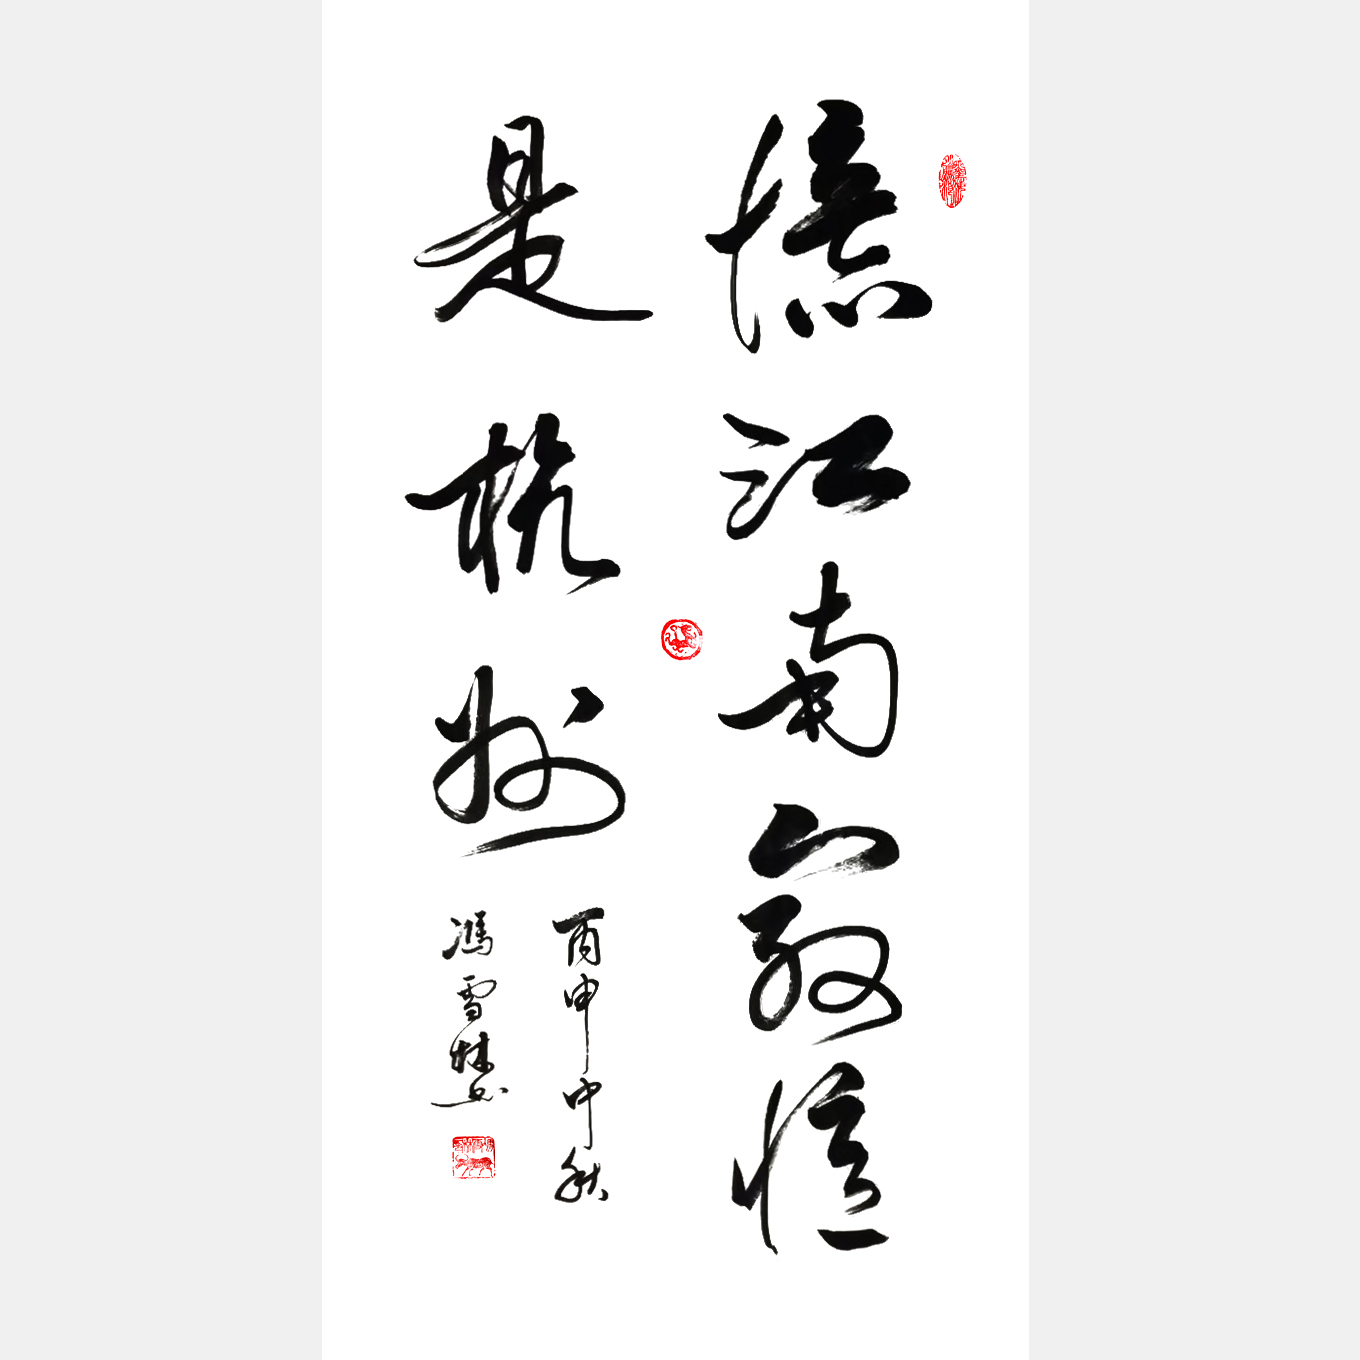 憶江南最憶
是杭州
丙申中秋
馮雪林书